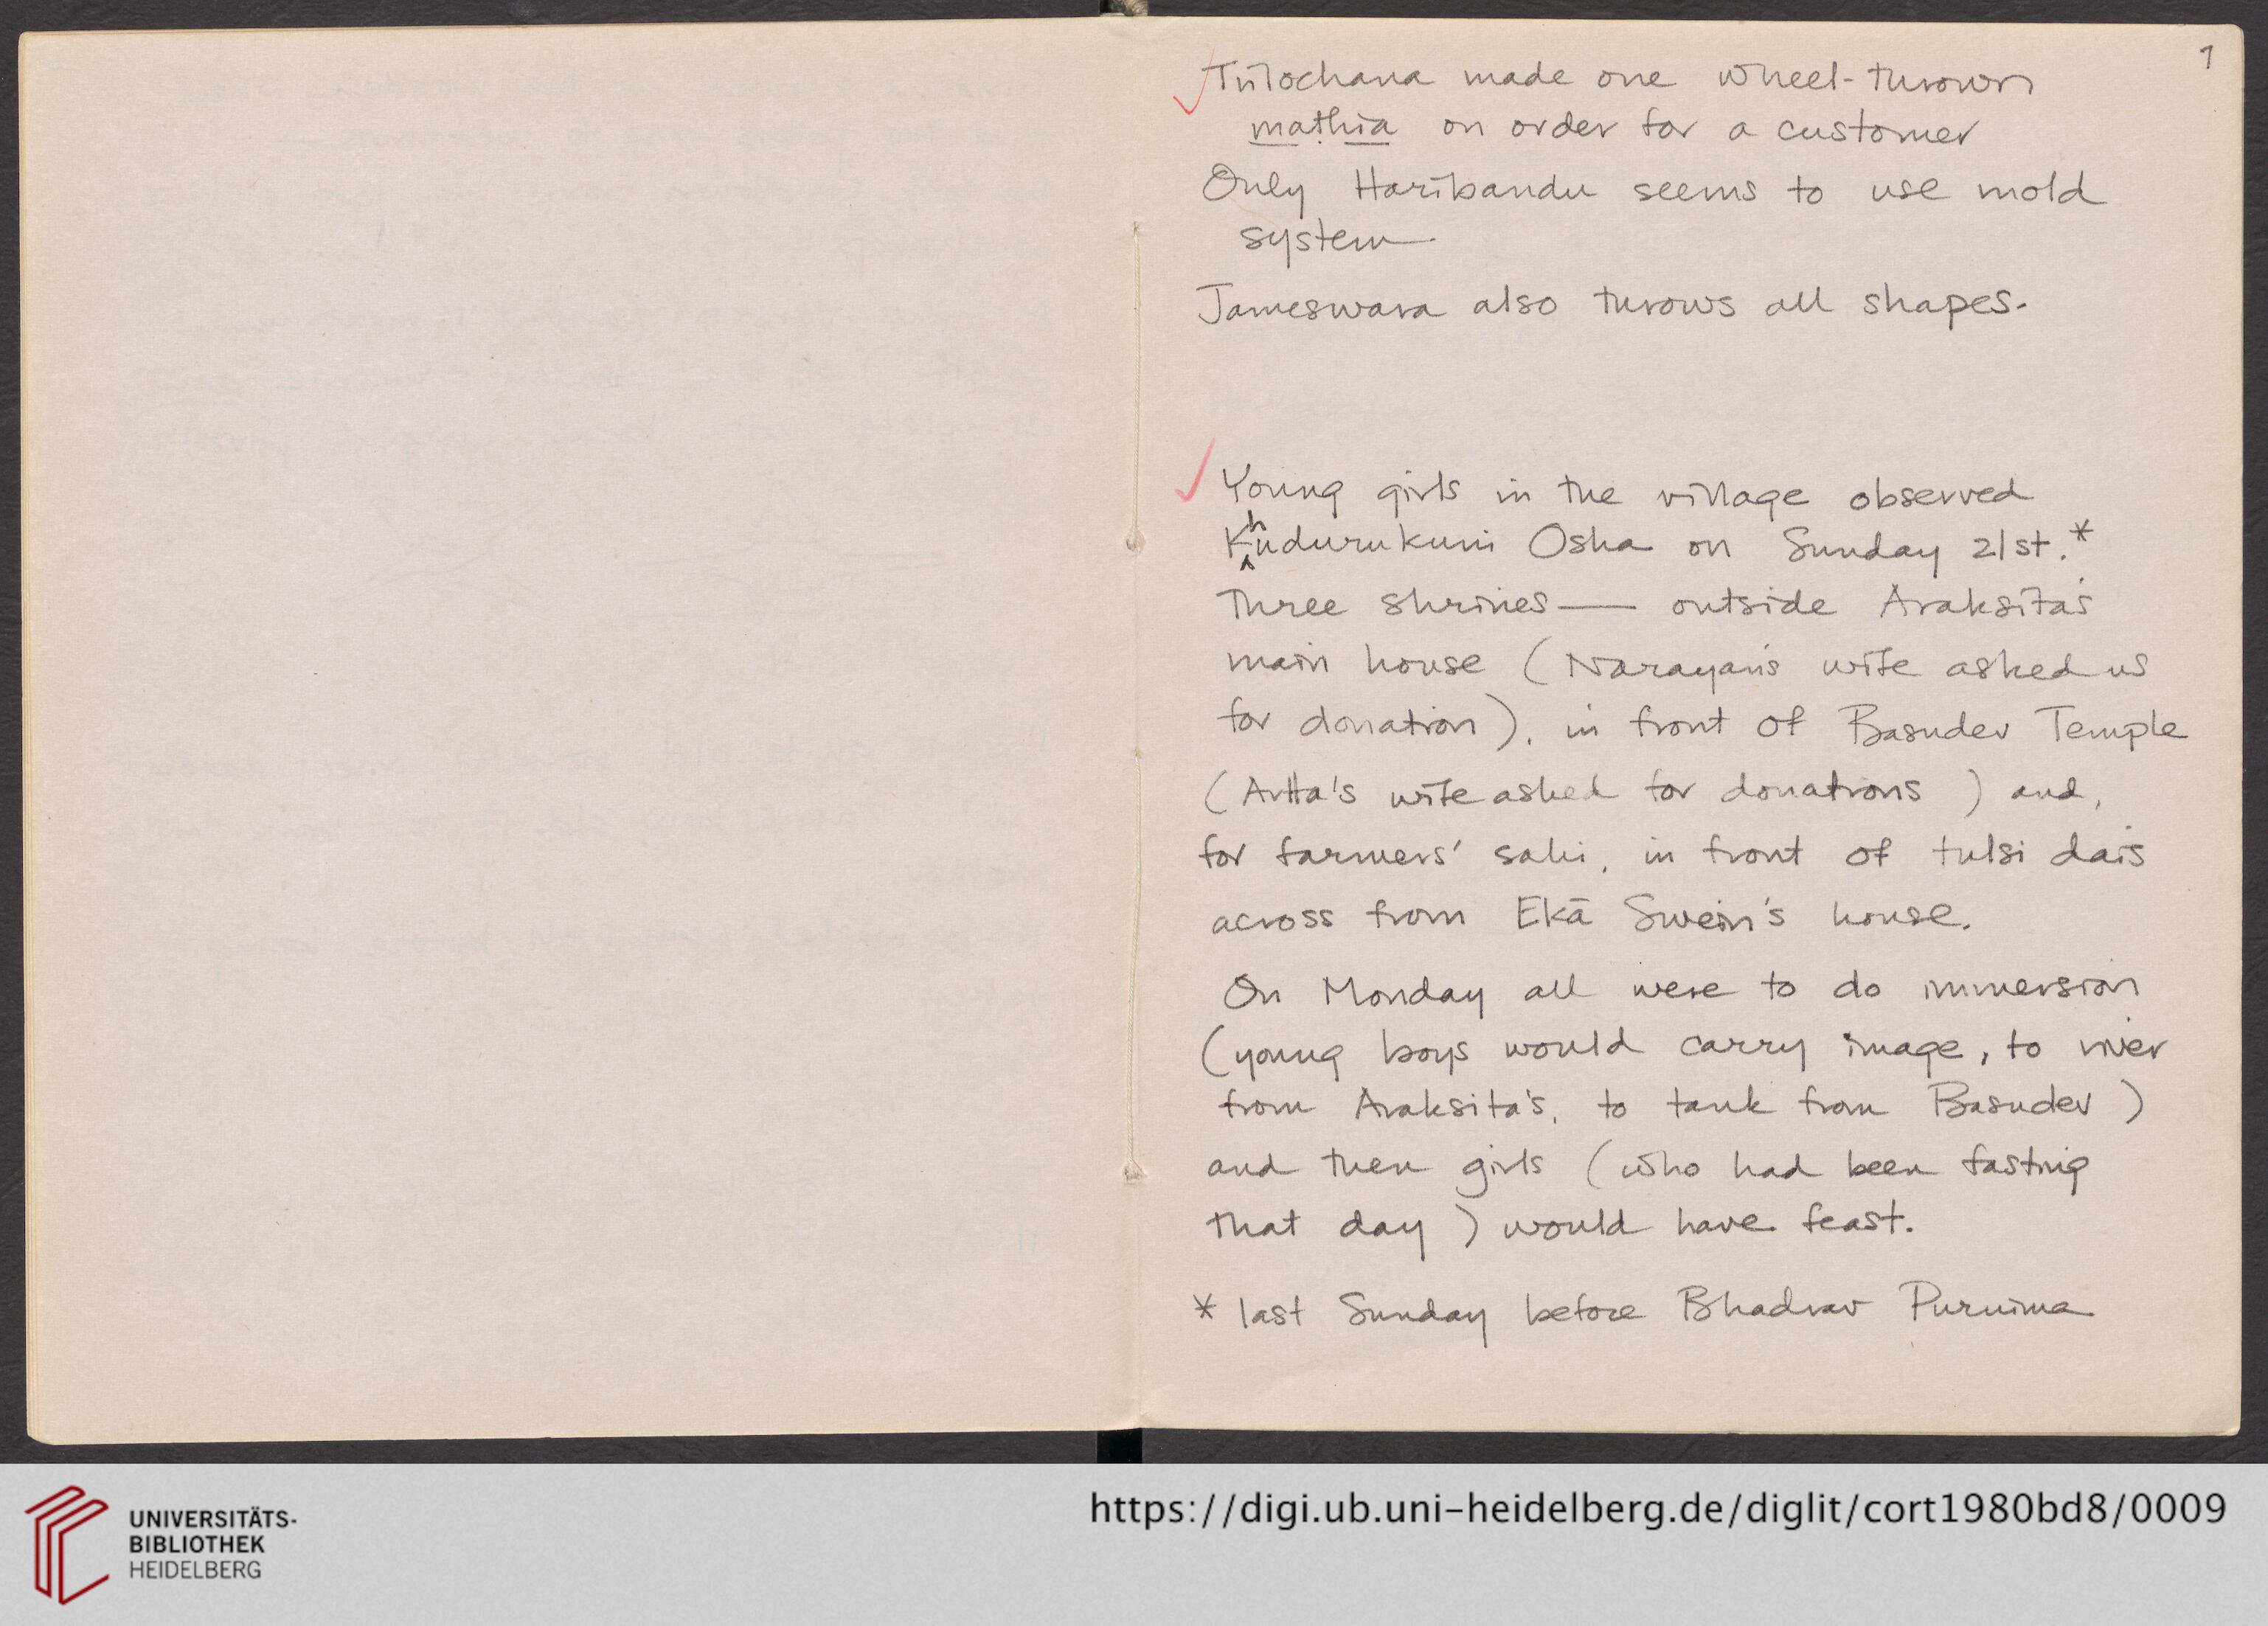 1
Trilochana made one wheel-thrown
maṭhia on order for a customer
Only Haribandu seems to use mold
system
Jameswara also throws all shapes.
Young girls in the village observed
Khudurukuni Osha on Sunday 21st.*
Three shrines — outside Araksita's
main house (Narayan's wife asked us
for donation), in front of Basudev Temple
(Artta's wife asked for donations) and,
for farmers' sahi, in front of tulsi dais
across from Ekā Swein's house.
On Monday all were to do immersion
(young boys would carry image, to river
from Araksita's, to tank from Basudev)
and then girls (who had been fasting
that day) would have feast.
* last Sunday before Bhadrav Purnima
UNIVERSITÄTS-
BIBLIOTHEK
HEIDELBERG
https://digi.ub.uni-heidelberg.de/diglit/cort1980bd8/0009